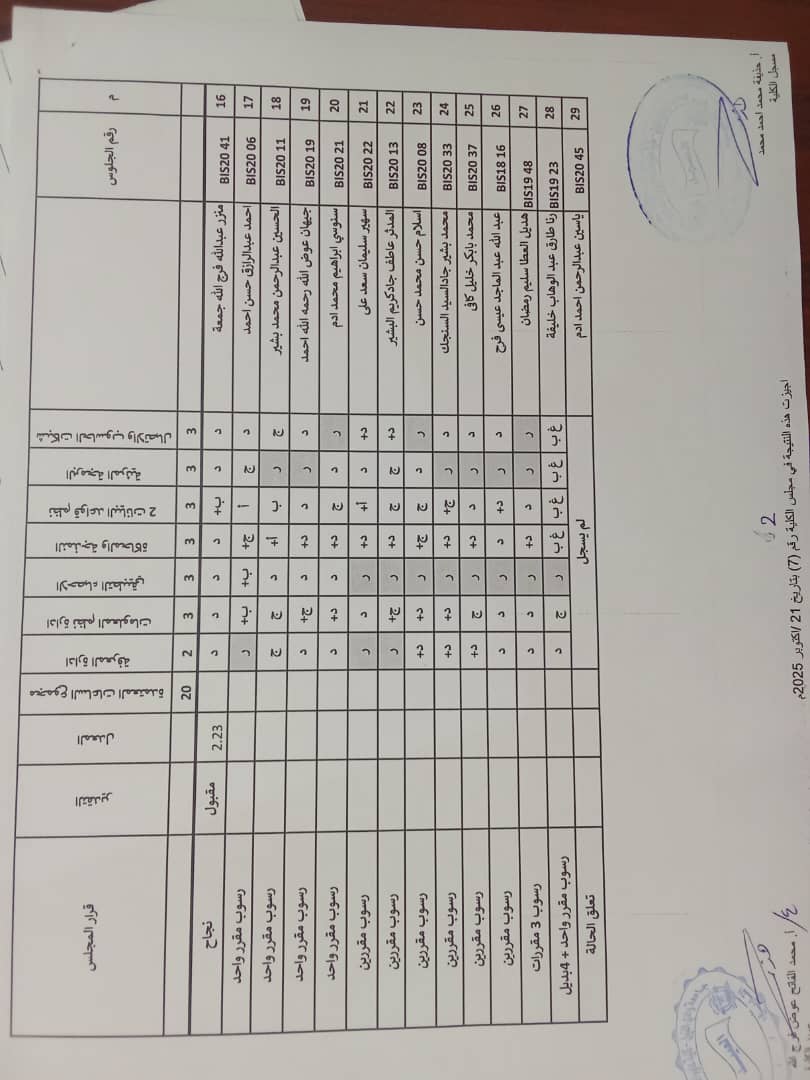 م رقم الجلوس شبكات الحاسوب والاتصال البرمجة المرئية نظم قواعد البيانات 2 النمذجة والمحاكاة الاحصاء التطبيقي ادارة نظم المعلومات ادارة المعرفة مجموع الساعات المعتمدة المعدل التقدير قرار المجلس
3 3 3 3 3 3 2 20
16 BIS20 41 منزر عبدالله فرج الله جمعة د د ب+ د د د د 2.23 مقبول نجاح
17 BIS20 06 احمد عبدالرازق حسن احمد د ج أ ج+ ب+ ب+ ر رسوب مقرر واحد
18 BIS20 11 الحسين عبدالرحمن محمد بشير ج ر ب أ+ د ج ج رسوب مقرر واحد
19 BIS20 19 جيهان عوض الله رحمه الله احمد د ر د د+ د ج+ د رسوب مقرر واحد
20 BIS20 21 سنوسي ابراهيم محمد ادم ر د ج د+ د د+ د رسوب مقرر واحد
21 BIS20 22 سهير سليمان سعد على د+ د أ+ د+ ر د ر رسوب مقررين
22 BIS20 13 المدثر عاطف جادكريم البشير د+ ج ج د+ ر ج+ ر رسوب مقررين
23 BIS20 08 اسلام حسن محمد حسن ر د ج ج+ ر د+ د+ رسوب مقررين
24 BIS20 33 محمد بشير جادالسيد السنجك د ر ج+ د+ ر د+ د+ رسوب مقررين
25 BIS20 37 محمد بابكر خليل كافى د ر د د+ ر ج د+ رسوب مقررين
26 BIS18 16 عبد الله عبد الماجد عيسى فرح د ر د+ د ر د د رسوب مقررين
27 BIS19 48 هديل العطا سليم رمضان ر ر د د+ ر د د رسوب 3 مقررات
28 BIS19 23 رنا طارق عبد الوهاب خليفة غ ب غ ب غ ب غ ب ر ج د رسوب مقرر واحد + 4بديل
29 BIS20 45 ياسين عبدالرحمن احمد ادم لم يسجل تعلق الحالة
اجيزت هذه النتيجة في مجلس الكلية رقم (7) بتاريخ 21 /اكتوبر 2025م
2
ا. حذيفة محمد احمد محمد
مسجل الكلية
ا. محمد الفاتح عوض فرج الله